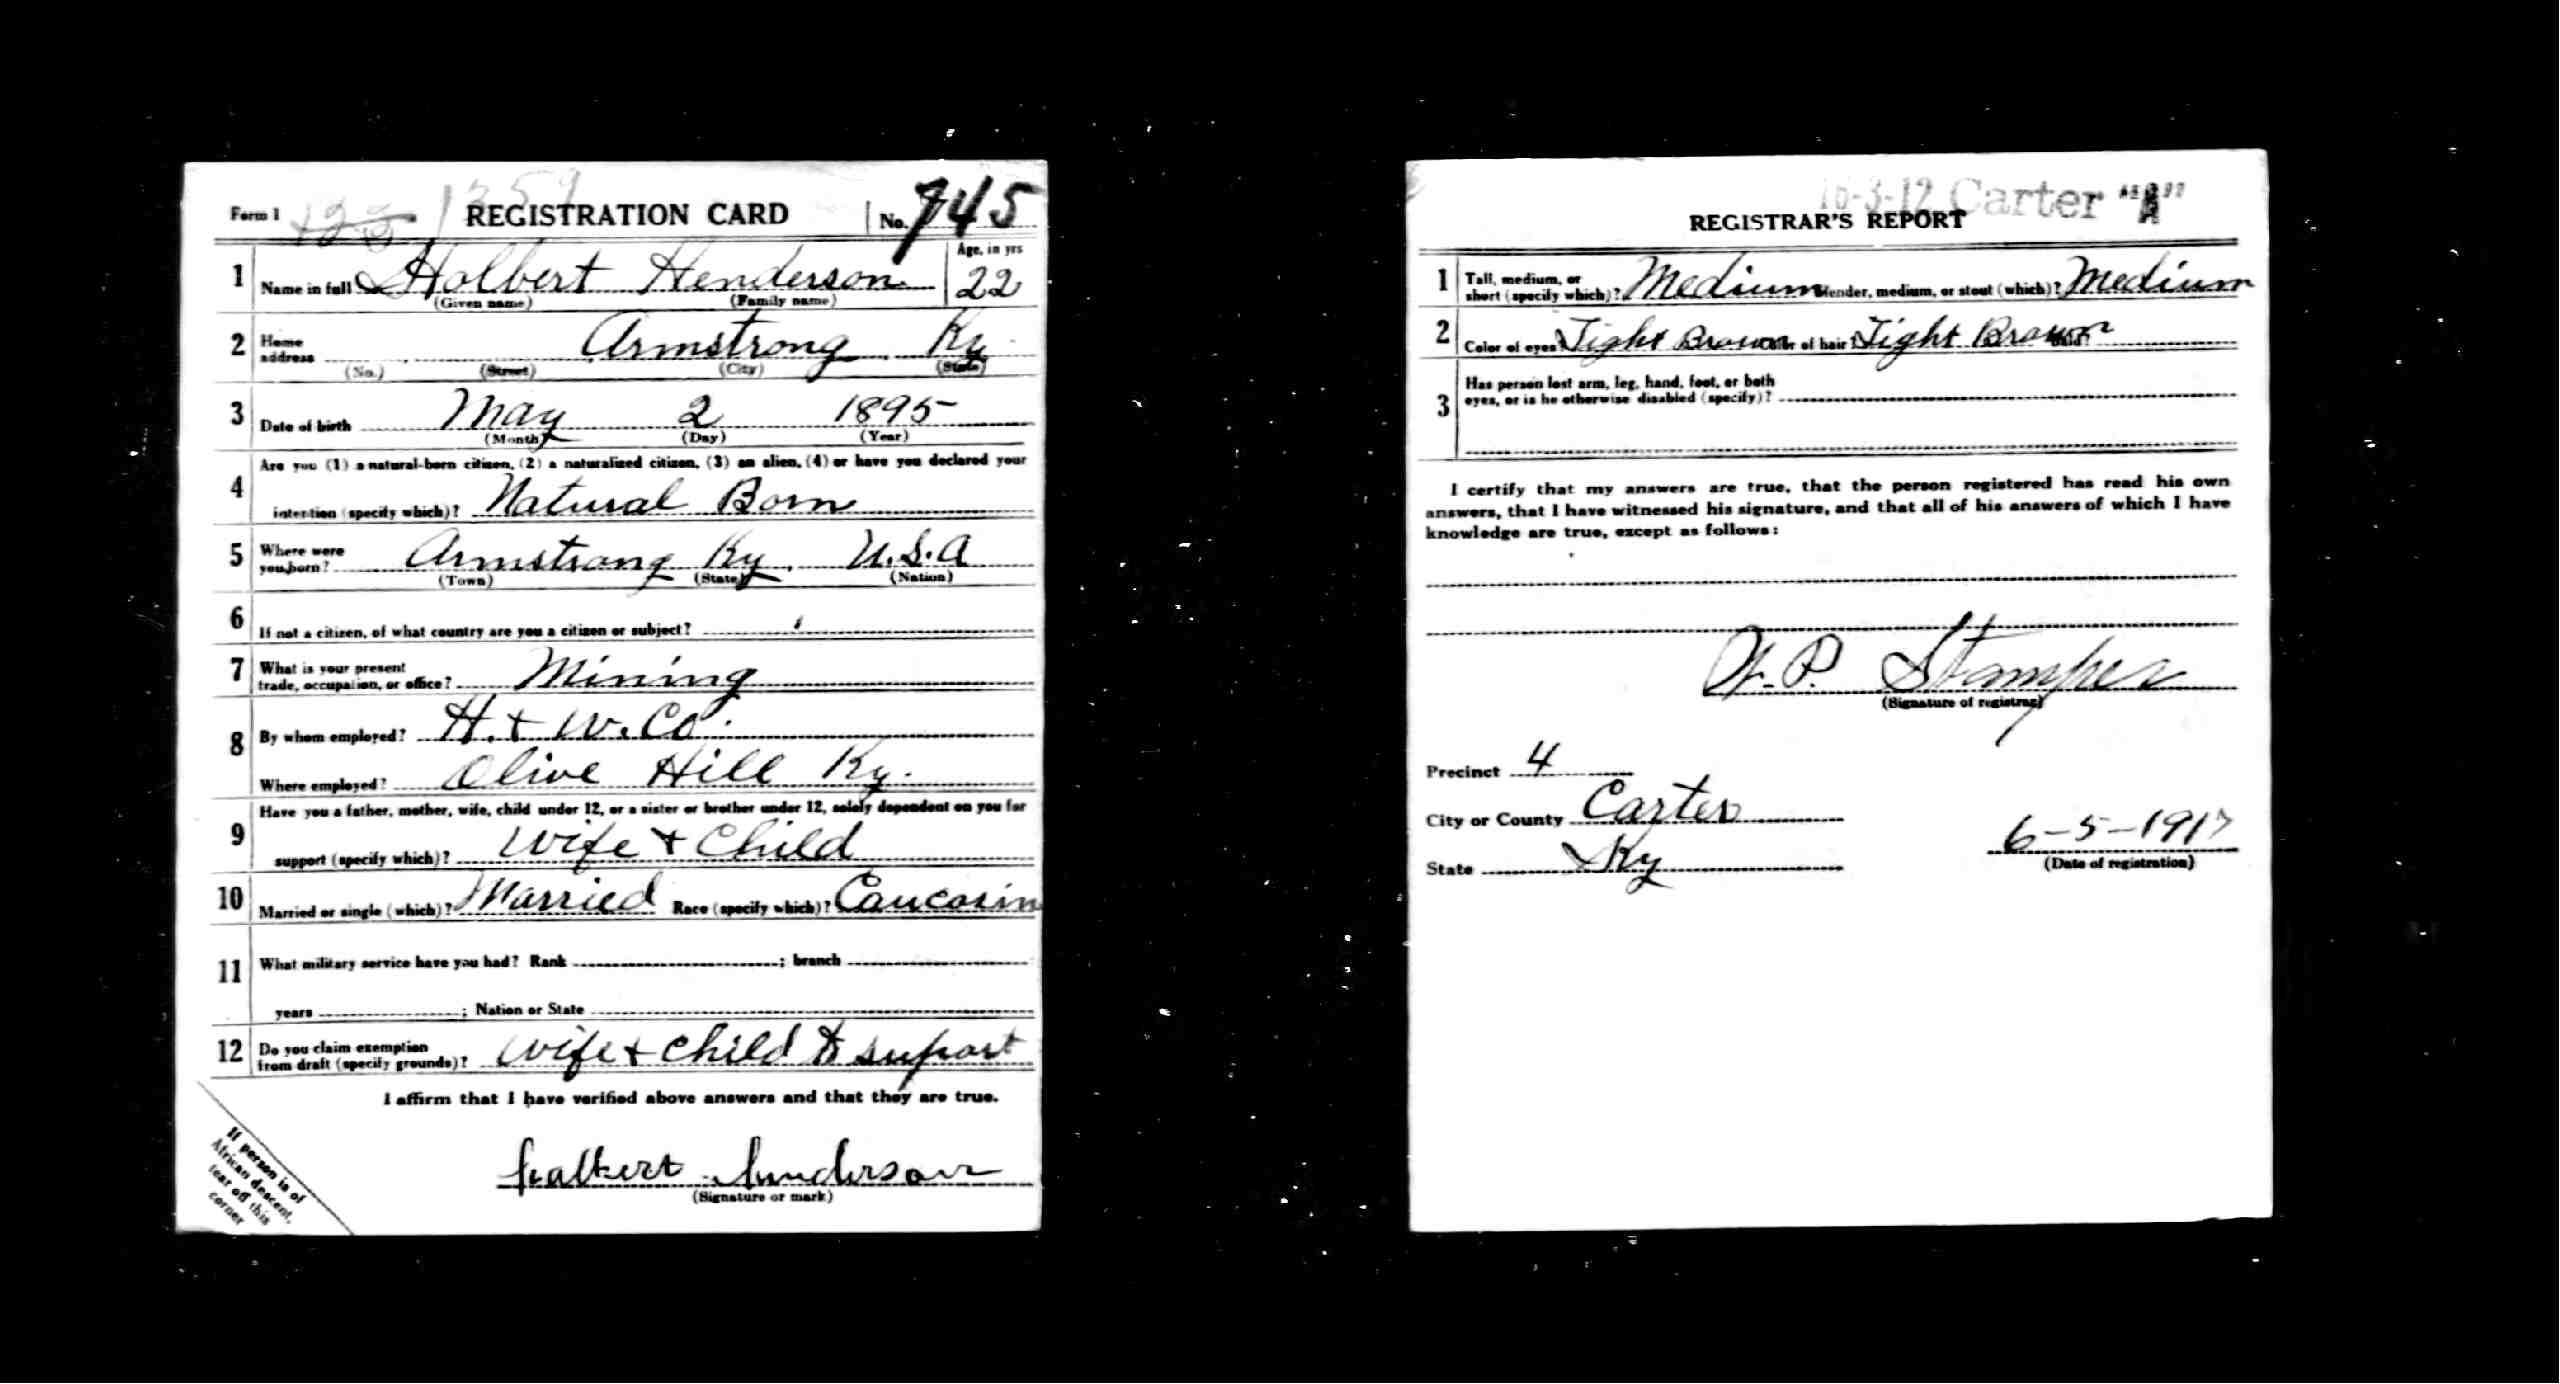 Form 1 1359 REGISTRATION CARD No. 745
1 Name in full Holbert Henderson Age, in yrs 22
(Given name) (Family name)
2 Home address Armstrong Ky
(No.) (Street) (City) (State)
3 Date of birth May 2 1895
(Month) (Day) (Year)
Are you (1) a natural-born citizen, (2) a naturalized citizen, (3) an alien, (4) or have you declared your
4 intention (specify which)? Natural Born
5 Where were you born? Armstrong Ky. U.S.A
(Town) (State) (Nation)
6 If not a citizen, of what country are you a citizen or subject?
7 What is your present trade, occupation, or office? Mining
8 By whom employed? H. + W. Co.
Where employed? Olive Hill Ky.
Have you a father, mother, wife, child under 12, or a sister or brother under 12, solely dependent on you for
9 support (specify which)? Wife + Child
10 Married or single (which)? Married Race (specify which)? Caucasin
11 What military service have you had? Rank ; branch
years ; Nation or State
12 Do you claim exemption from draft (specify grounds)? Wife + Child to suport
I affirm that I have verified above answers and that they are true.
Halbert Henderson
(Signature or mark)
If person is of
African descent,
tear off this
corner
16-3-12 Carter "A"
REGISTRAR'S REPORT
1 Tall, medium, or short (specify which)? Medium Slender, medium, or stout (which)? Medium
2 Color of eyes Light Brown Color of hair Light Brown
Has person lost arm, leg, hand, foot, or both
3 eyes, or is he otherwise disabled (specify)?
I certify that my answers are true, that the person registered has read his own
answers, that I have witnessed his signature, and that all of his answers of which I have
knowledge are true, except as follows:
W. P. Stamper
(Signature of registrar)
Precinct 4
City or County Carter
State Ky
6-5-1917
(Date of registration)